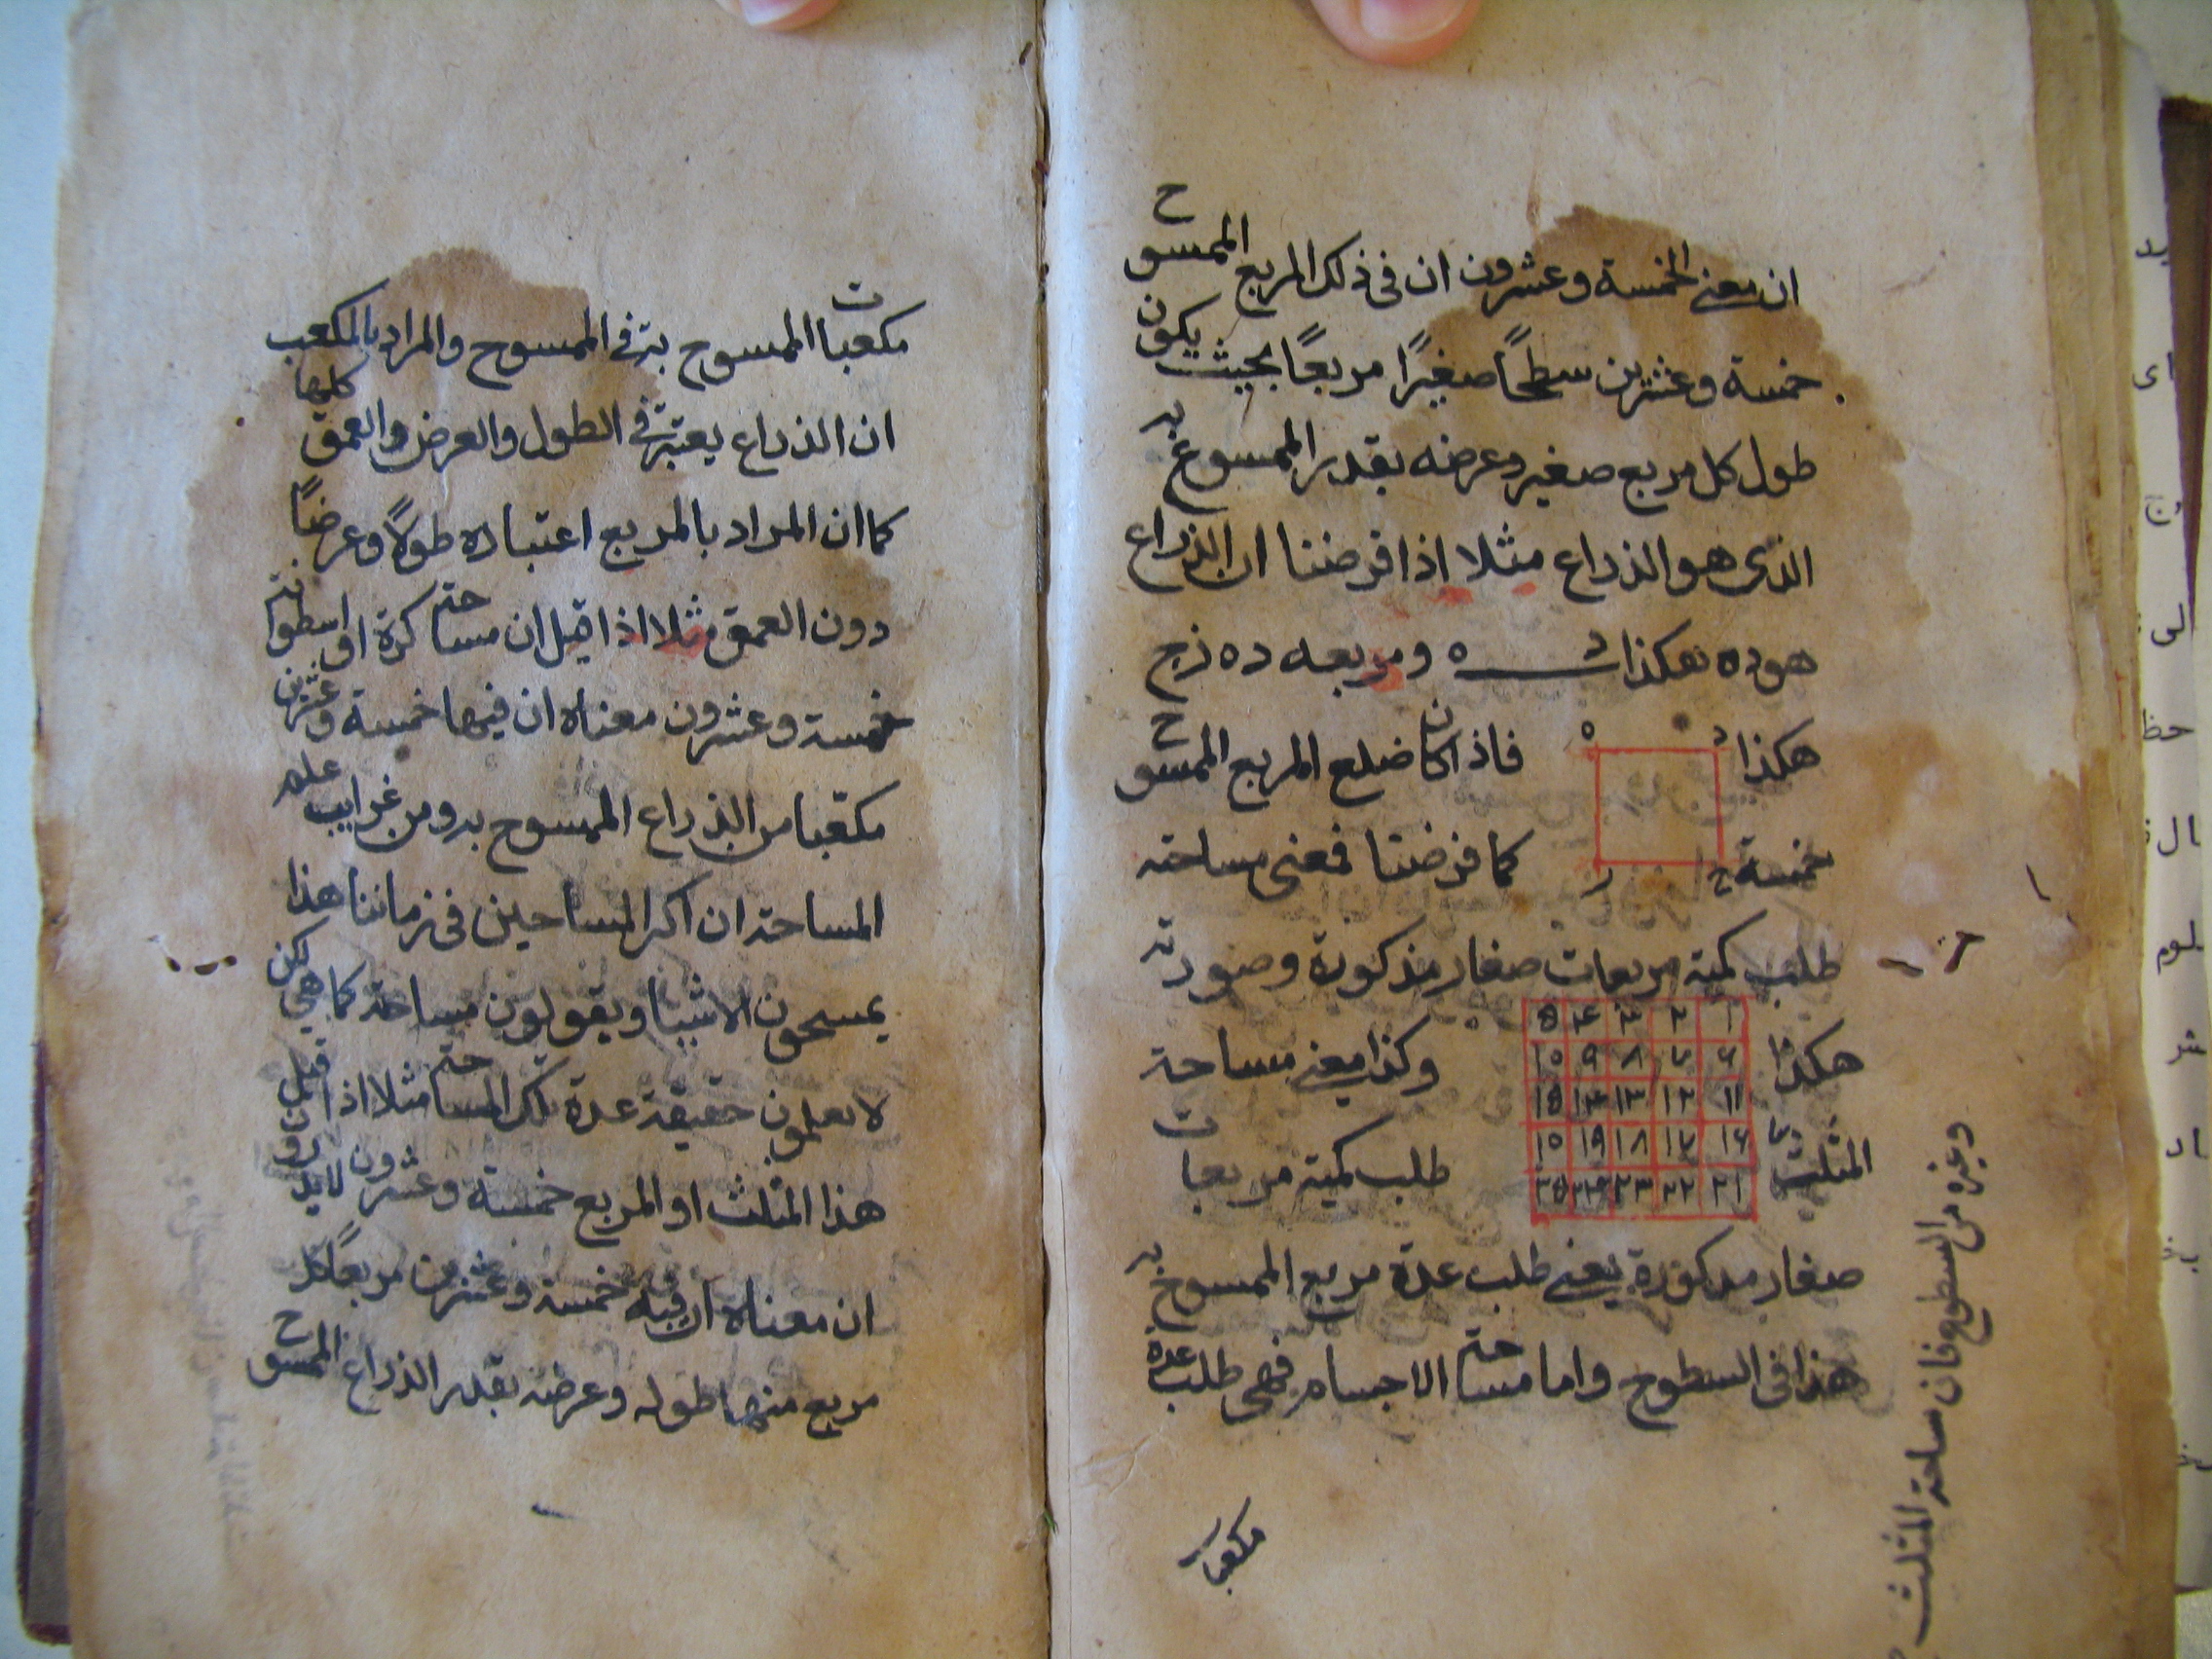 ان يعني الخمسة وعشرون ان في ذلك المربع الممسوح
خمسة وعشرين سطحاً صغيراً مربعاً بحيث يكون
طول كل مربع صغير وعرضه بقدر الممسوح به
الذى هو الذراع مثلا اذا فرضنا ان الذراع
هو ده هكذا د ه ومربعه ده زج
هكذا د ه فاذا كان ضلع المربع الممسوح
خمسة ج ز كما فرضنا فمعنى مساحته
طلب كمية مربعات صغار مذكورة وصورته
هكذا
١ ٢ ٣ ۴ ۵
۶ ٧ ٨ ٩ ١٥
١١ ١٢ ١٣ ١۴ ١۵
١۶ ١٧ ١٨ ١٩ ١٥
٢١ ٢٢ ٢٣ ٢۴ ٢۵
وكذا معنى مساحة
المثلث طلب كمية مربعات
صغار مذكورة يعني طلب عدة مربع الممسوح به
هذا فى السطوح واما مساحة الاجسام فهى طلب عدة
مكعبا
وغيره من السطوح فان مساحة المثلث
مكعبات الممسوح به في الممسوح والمراد بالمكعب
ان الذراع يعتبر في الطول والعرض والعمق كليها
كما ان المراد بالمربع اعتباره طولاً وعرضاً
دون العمق مثلا اذا قيل ان مساحة كرة او اسطوانة
خمسة وعشرون معناه ان فيها خمسة وعشرين
مكعبا من الذراع الممسوح به ومن غرايب علم
المساحة ان اكثر المساحين في زماننا هذا
يمسحون الاشيا ويقولون مساحة كما هي لكن
لا يعلمون حقيقة عدة تلك المساحة مثلا اذا قيل ان
هذا المثلث او المربع خمسة وعشرون لا يدرون
ان معناه ان فيه خمسة وعشرين مربعاً كل
مربع منها طوله وعرضه بقدر الذراع الممسوح